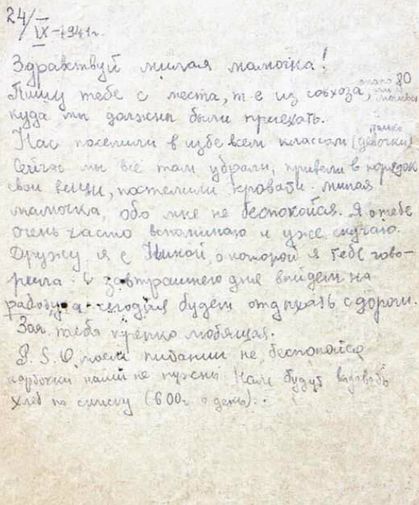 24/IX-1941г.
Здравствуй милая мамочка!
Пишу тебе с места, т.е из совхоза, около 80
куда мы должны были приехать.
Нас поселили в избе всем классом (только девочки)
Сейчас мы все там убрали, привели в порядок
свои вещи, постелили кровати. милая
мамочка, обо мне не беспокойся. Я о тебе
очень часто вспоминаю и уже скучаю.
Дружу я с Ниной, о которой я тебе гово-
рила. С завтрашнего дня выйдем на
работу, а сегодня будем отдыхать с дороги.
Зоя тебя крепко любящая.
P.S. О моем питании не беспокойся
карточки нам не нужны. Нам будут выдавать
хлеб по списку (600г. в день).